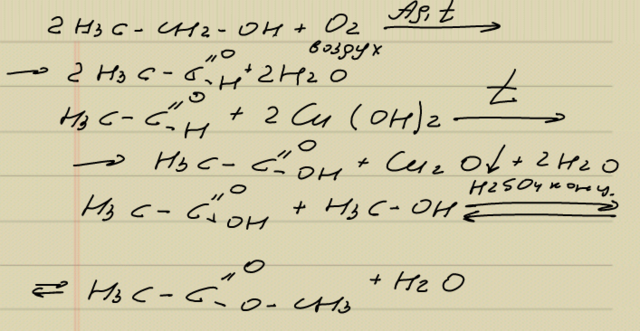 2 H3C - CH2 - OH + O2 Ag, t →
воздух
→ 2 H3C - C =O - H + 2H2O
H3C - C =O - H + 2 Cu(OH)2 t →
→ H3C - C =O - OH + Cu2O↓ + 2H2O
H3C - C =O - OH + H3C - OH H2SO4 конц. ⇌
⇌ H3C - C =O - O - CH3 + H2O